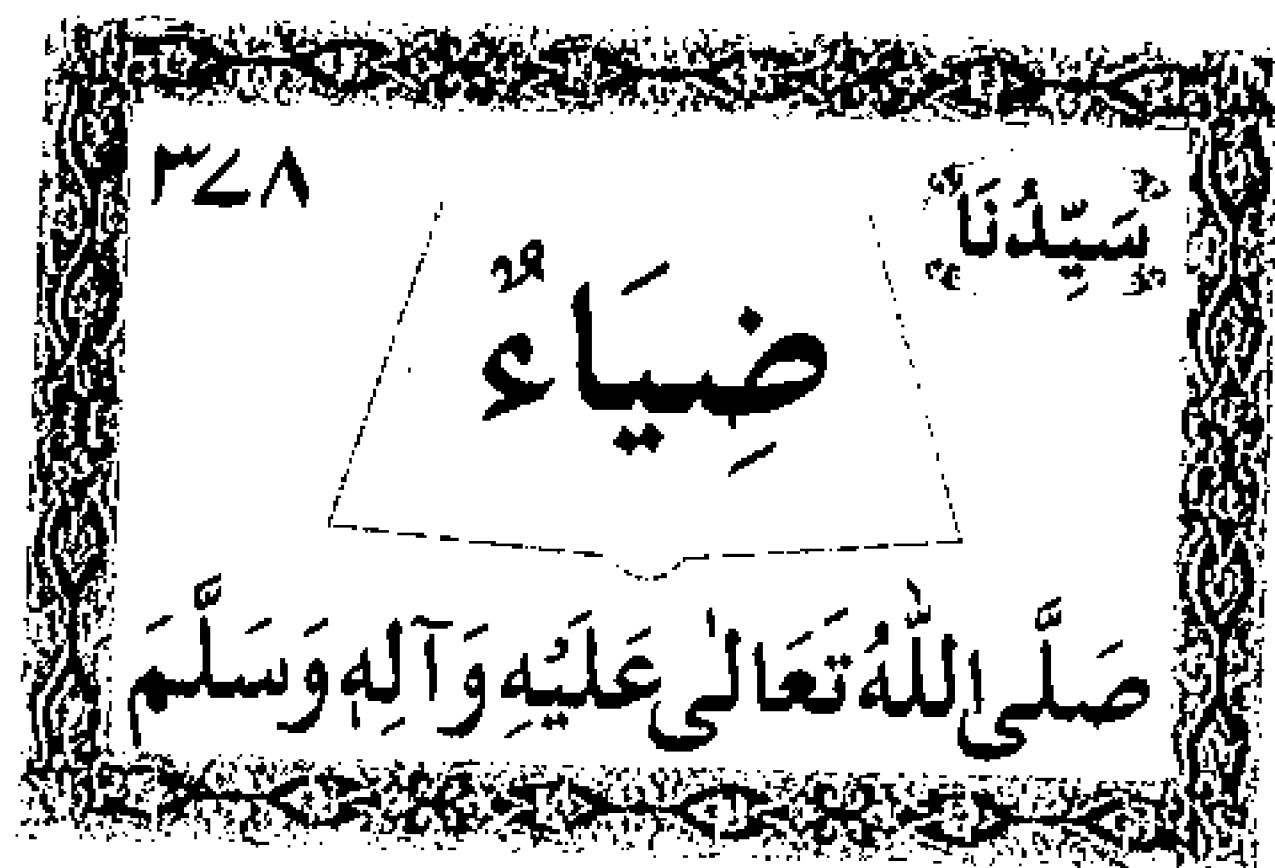 سَيِّدُنَا
۳۷۸
ضِيَاءٌ
صَلَّى اللّٰهُ تَعَالٰى عَلَيْهِ وَآلِهٖ وَسَلَّمَ